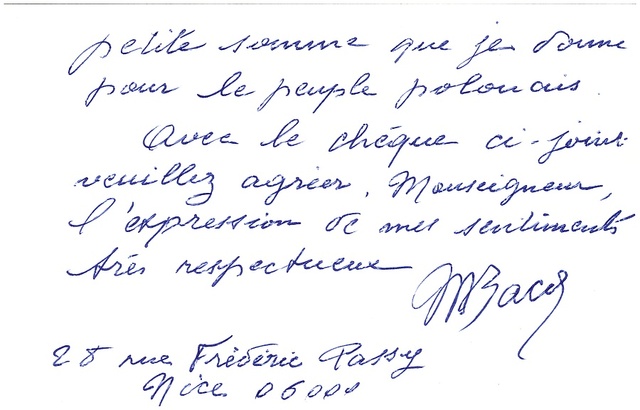 petite somme que je donne
pour le peuple polonais.
Avec le chèque ci-joint
veuillez agréer, Monseigneur,
l'expression de mes sentiments
très respectueux
28 rue Frédéric Passy
Nice 06000